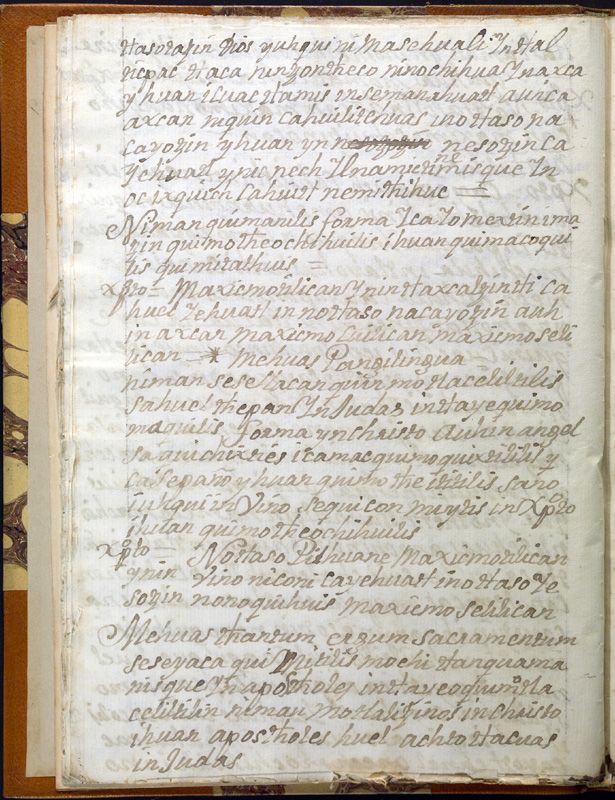 ttasotatin Dios yuhqui ni Masehuali Intlal
ticpac ttaca ninzontteco ninochihuas Inaxca
yhuan icuac ttamis insemanahuatt aunca
axcan niquin cahuilitehuas inottaso na
cayotzin yhuan yn nesotzin ca
Yehuatt ynic nech Ilnamictinemisque In
oc ixquich cahuitt nemitihue =
Niman quimanilis forma Ica Yomextin ima
tzin quimotheochihuilis ihuan quimacoqui
lis quimitathuis =
Xpto = Maxicmotilican Yninttaxcaltzintti ca
huel Yehuatt in nottaso nacayotzin auh
in axcan maxicmo cuilican maxicmoseli
lican - * Mehuas Pange lingua
niman sesellacan quinmottaceliltilis
sahuel ttepan In Judas inttayequimo
maquilis forma ynchristo Auh in angel
sa quichixties icamac quimoquixtilis y
ca Sepaño yhuan quimotheittitilis sano
iuhqui in Vino sequicon miytis in Xpto
iHuan quimotheochihuilis
Xpto = Nottaso Pilhuane Maxicmotilican
ynin Vino niconi ca yehuatt inottaso Ye
sotzin nonoquihuis maxicmo selilican
Mehuas tthantum ergum Sacramentum
seseyaca qui Mitilis mochi ttanquama
nisque In apostholes inttayeoquimotla
celiltilin niman mottalitzinos in christo
ihuan apostholes huel achto ttacuas
in Judas